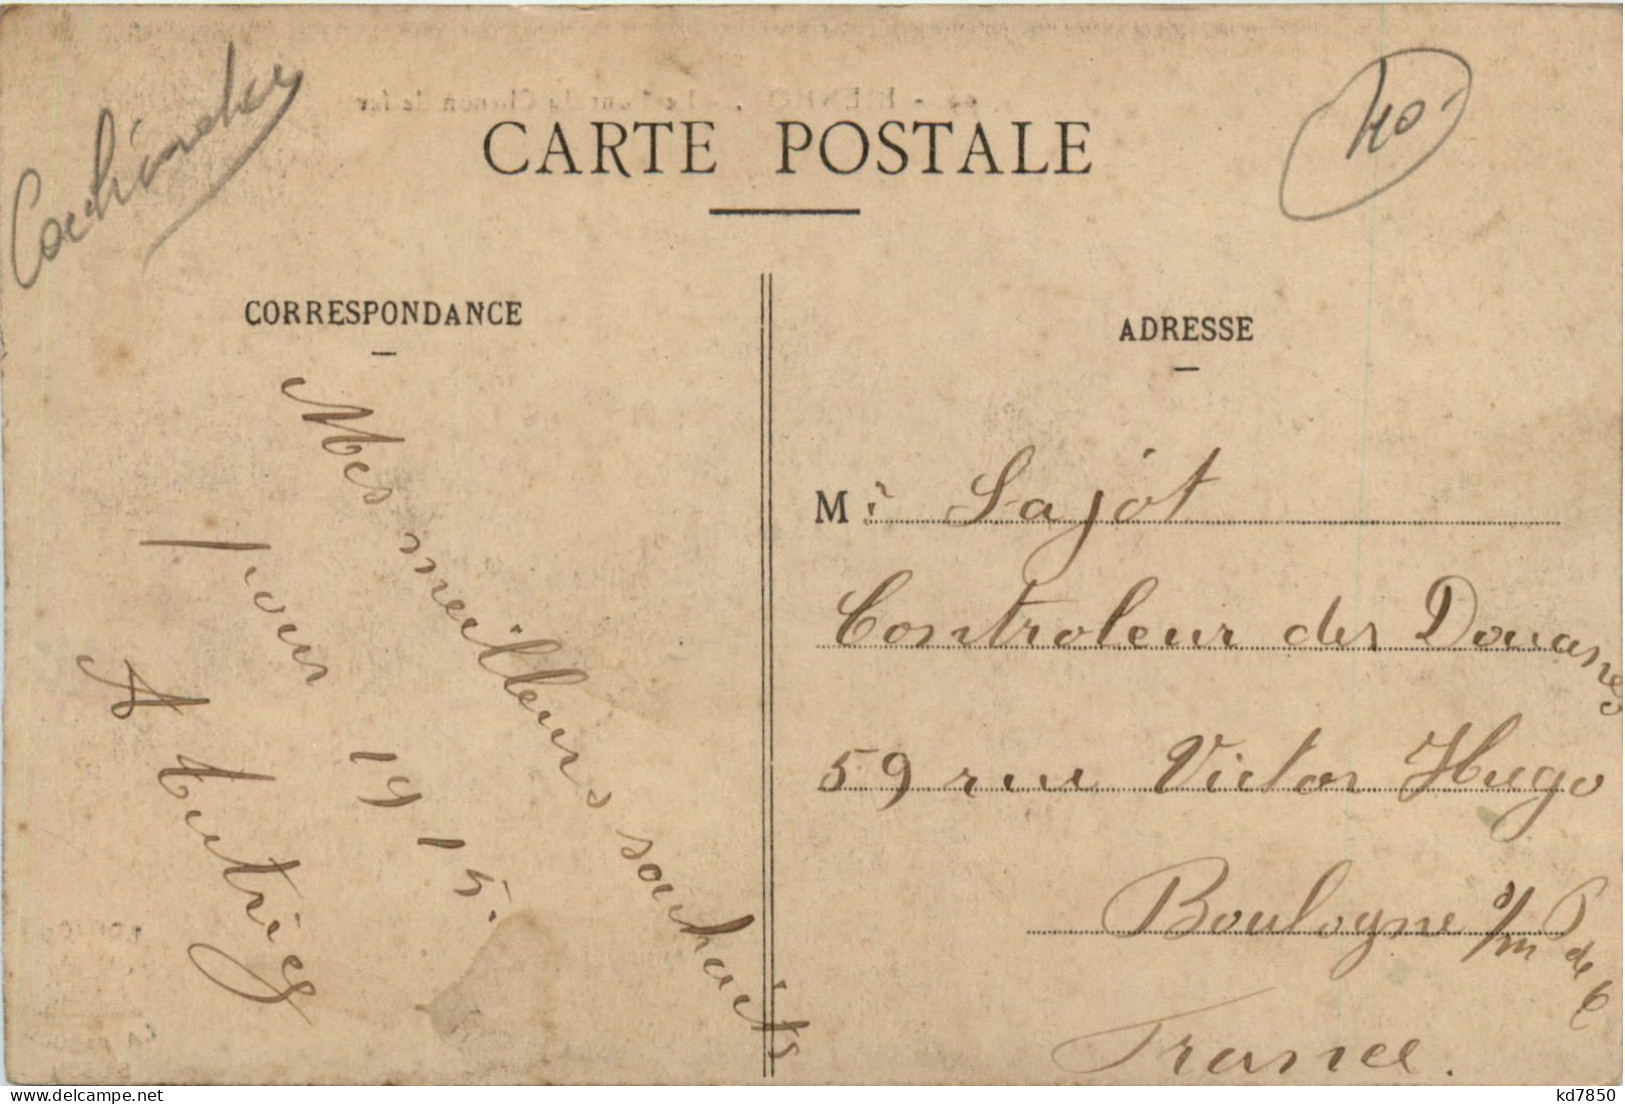 Cochinchine
40.
CARTE POSTALE
CORRESPONDANCE
ADRESSE
Mes meilleurs souhaits
pour 1915.
Mr Lajot
Controleur des Douanes
59 rue Victor Hugo
Boulogne s/m P de C
France.
kd7850